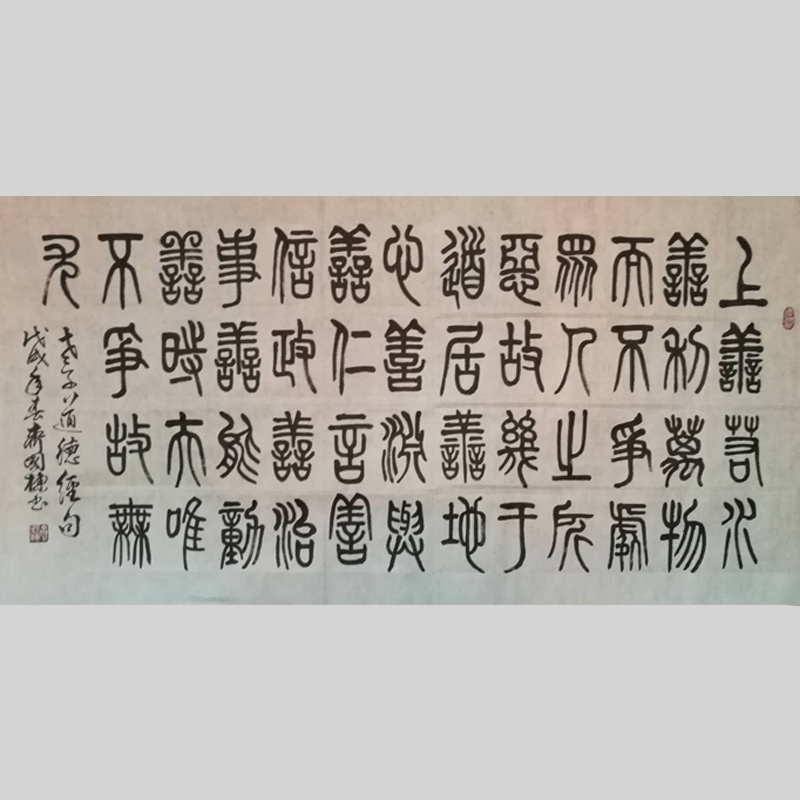 上善若水
善利萬物
而不爭處
眾人之所
惡故幾于
道居善地
心善淵與
善仁言善
信政善治
事善能動
善時夫唯
不爭故無
尤
老子道德經句
戊戌年春齊國棟書